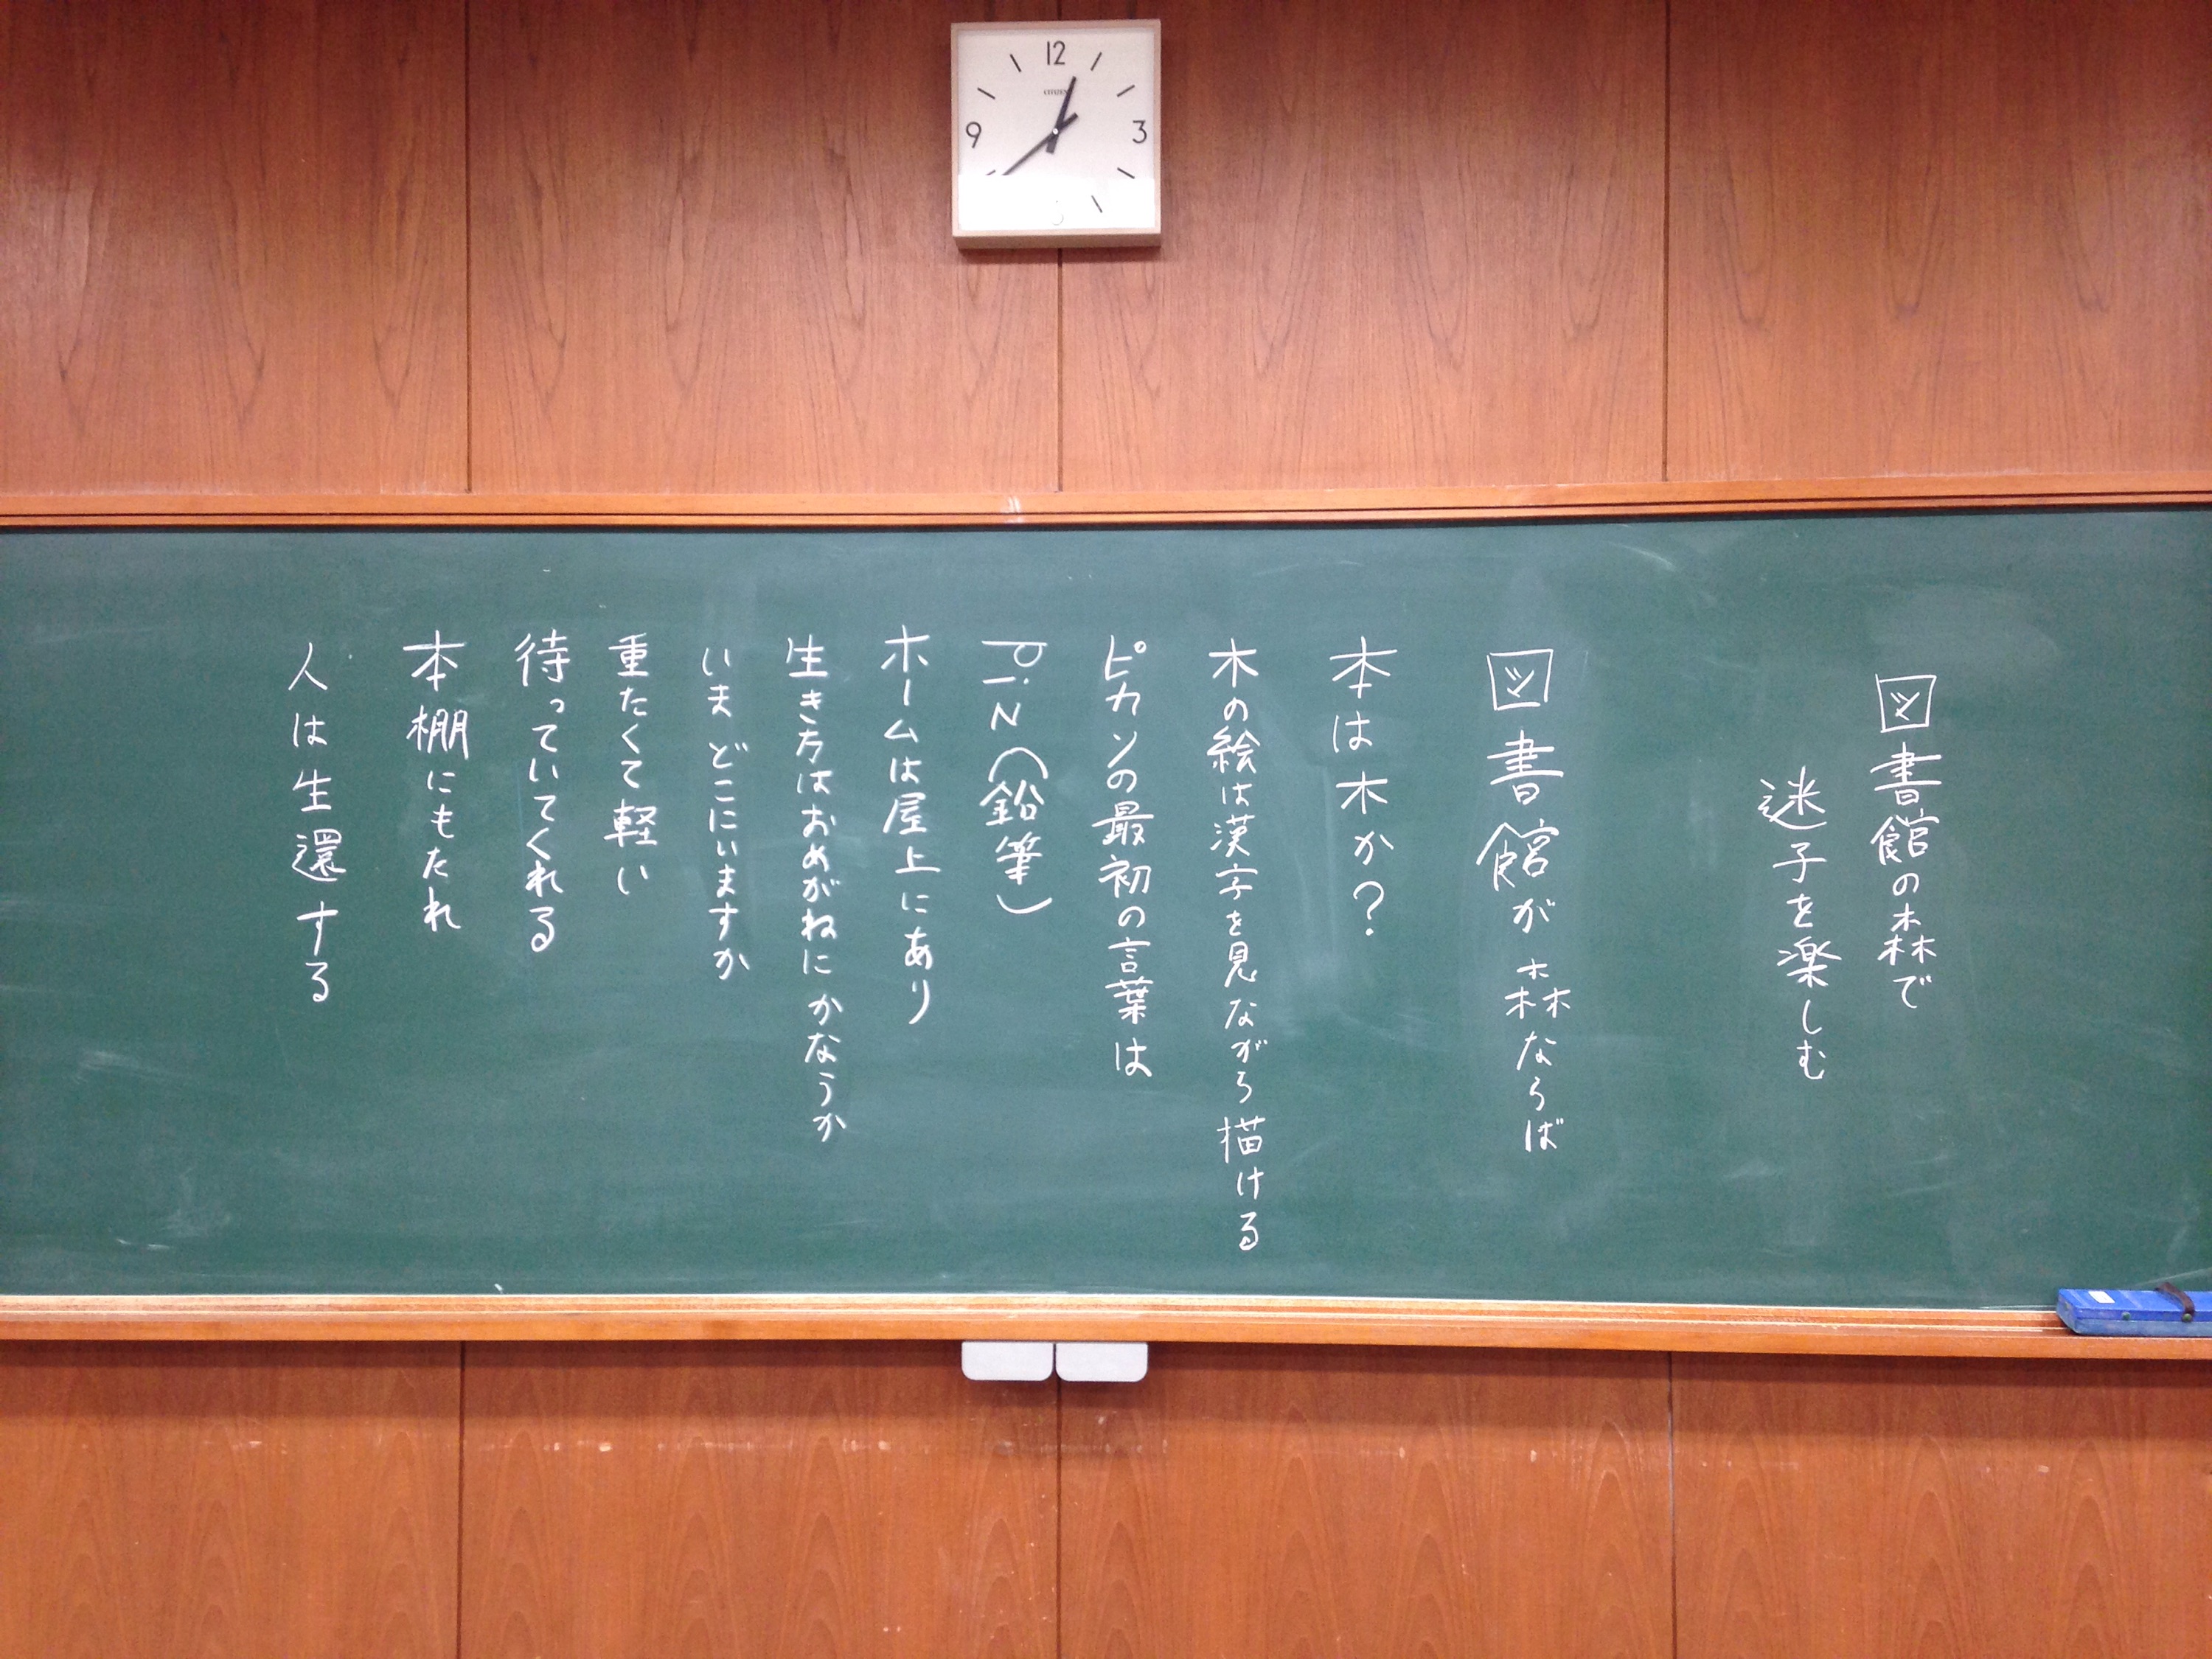 12
CITIZEN
9
3
図書館の森で
迷子を楽しむ
図書館が森ならば
本は木か？
木の絵は漢字を見ながら描ける
ピカソの最初の言葉は
PiN（鉛筆）
ホームは屋上にあり
生き方はおめがねにかなうか
いまどこにいますか
重たくて軽い
待っていてくれる
本棚にもたれ
人は生還する